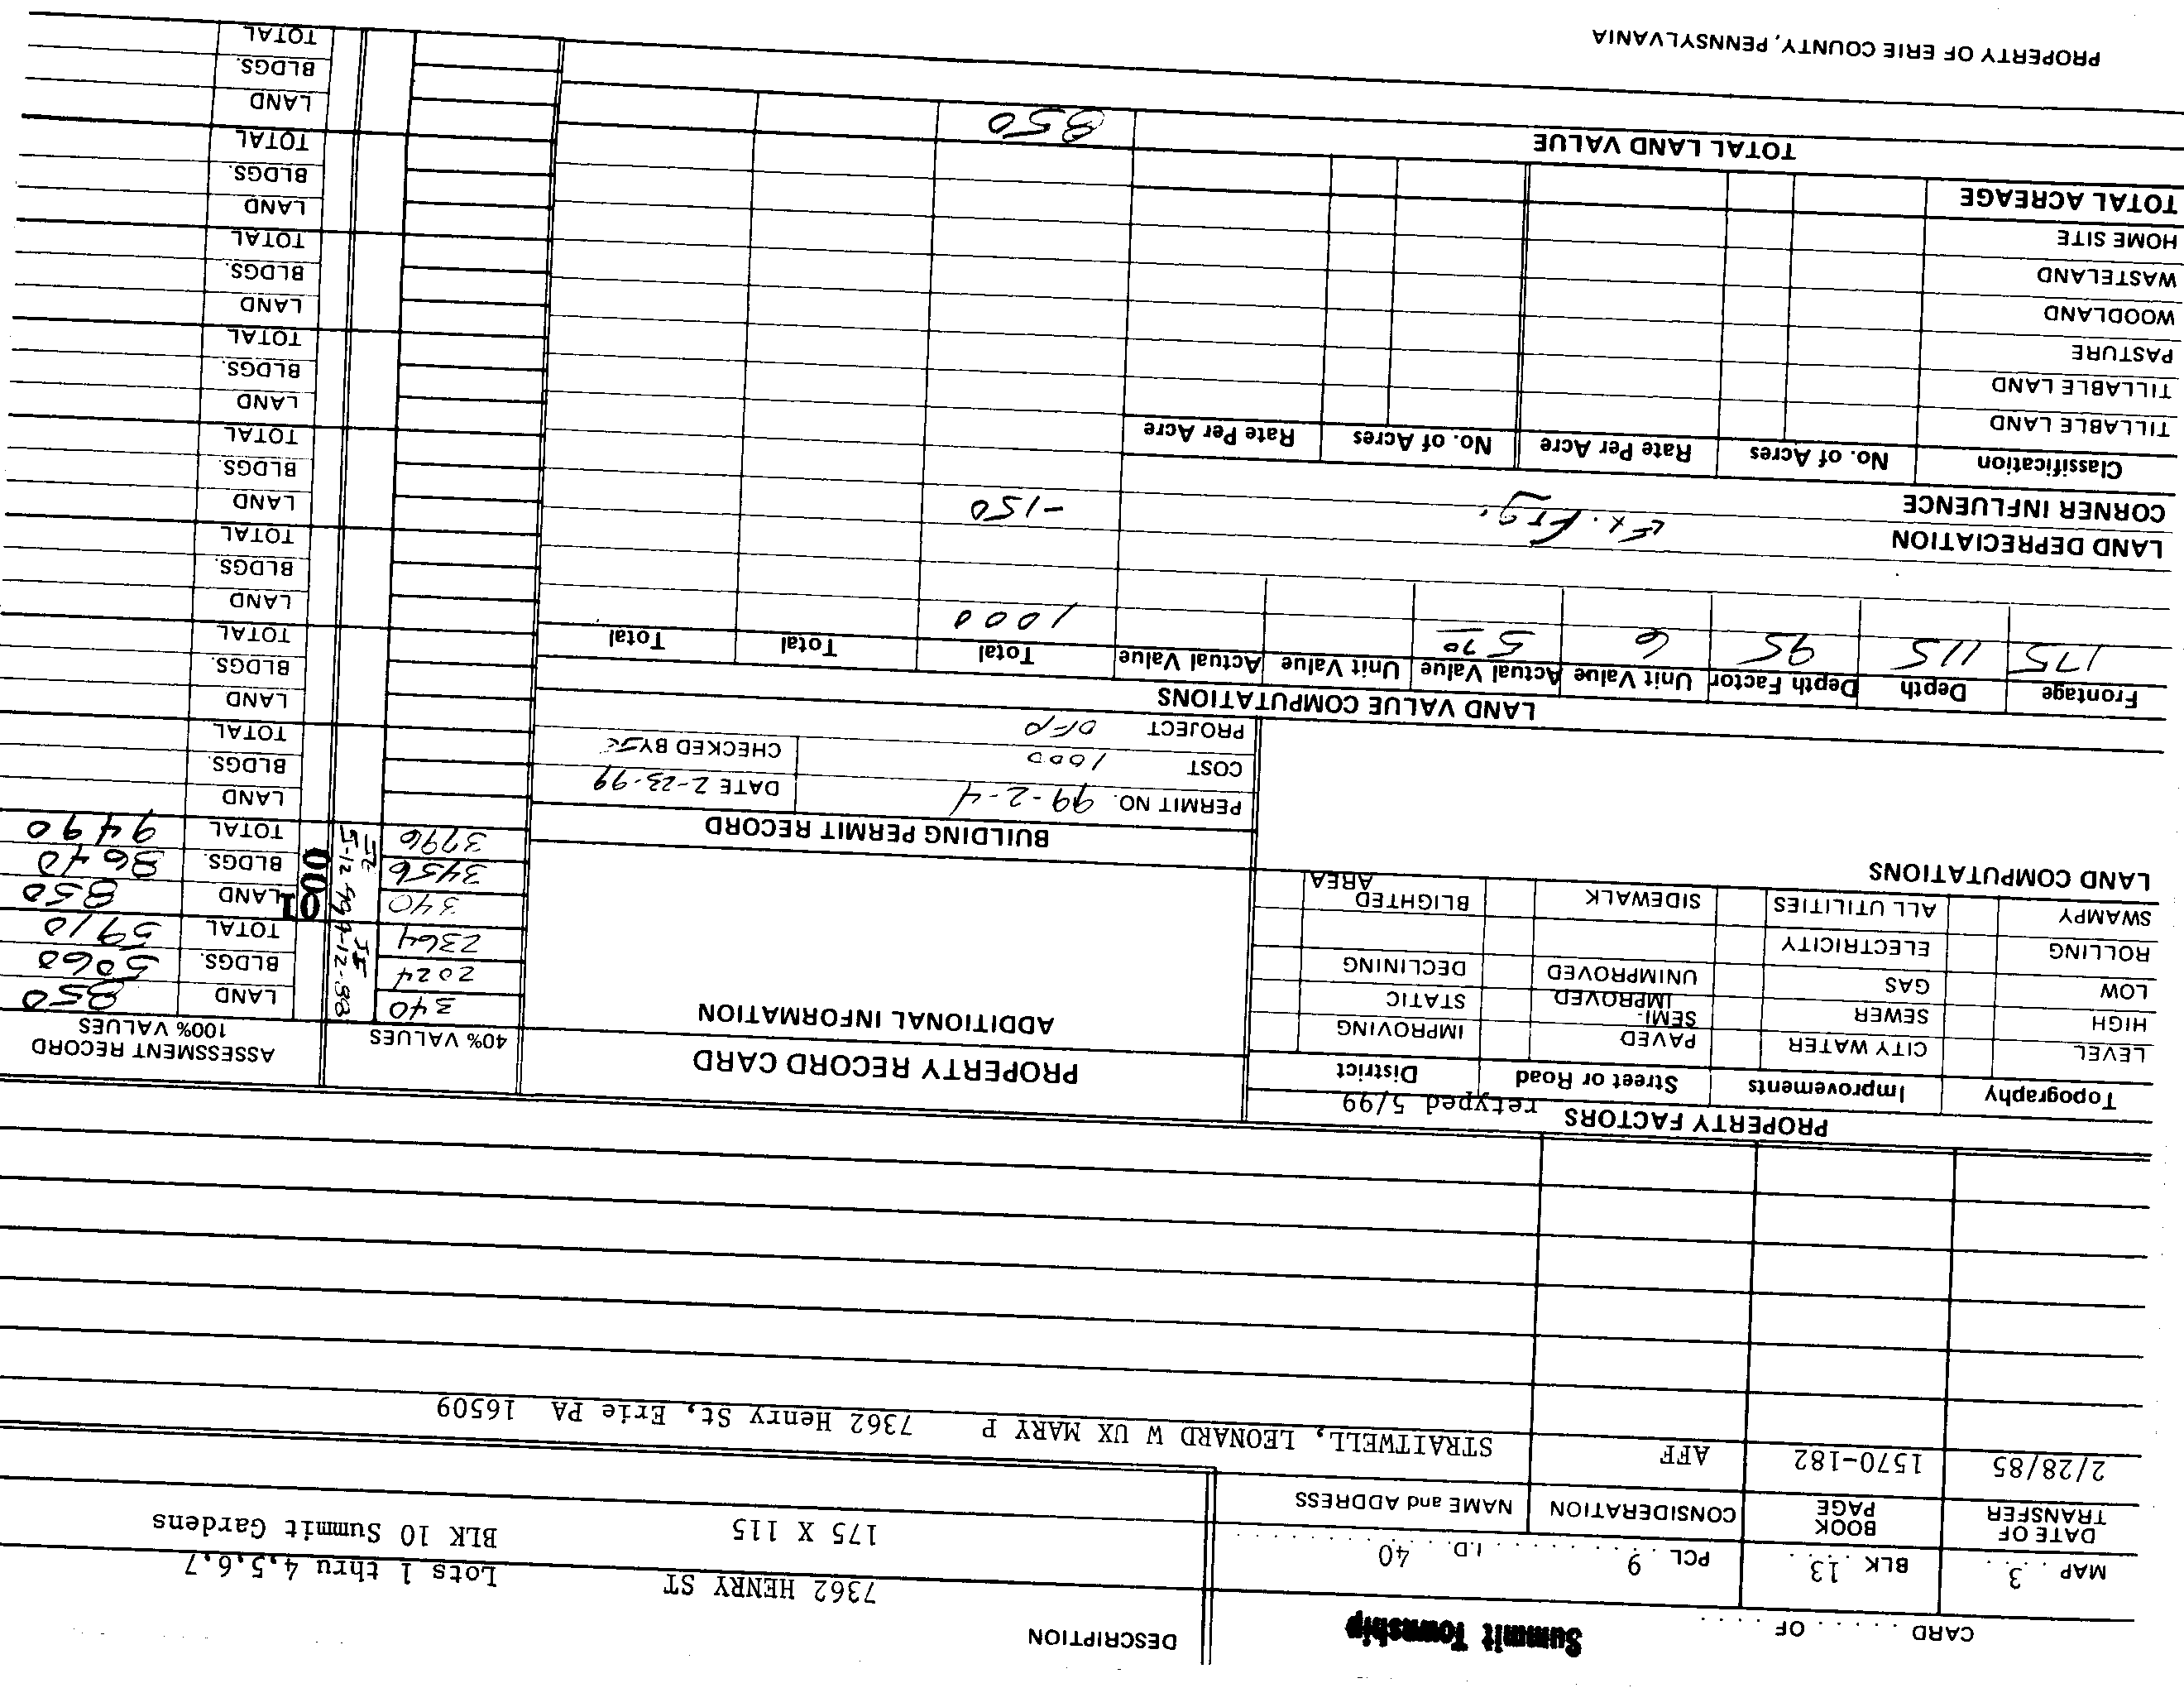 CARD . . . . . . OF . . . . . Summit Township
DESCRIPTION
MAP . 3 . . . BLK . 13 . . PCL . 9 . . . . . . . . I.D. . . 40 . . . . . . . . .
7362 HENRY ST Lots 1 thru 4,5,6,7
175 X 115 BLK 10 Summit Gardens
DATE OF TRANSFER BOOK PAGE CONSIDERATION NAME and ADDRESS
2/28/85 1570-182 AFF STRAITWELL, LEONARD W UX MARY P 7362 Henry St, Erie PA 16509
PROPERTY FACTORS retyped 5/99
Topography Improvements Street or Road District
LEVEL CITY WATER PAVED IMPROVING
HIGH SEWER SEMI-IMPROVED STATIC
LOW GAS UNIMPROVED DECLINING
ROLLING ELECTRICITY
SWAMPY ALL UTILITIES SIDEWALK BLIGHTED AREA
LAND COMPUTATIONS
PROPERTY RECORD CARD
ADDITIONAL INFORMATION
BUILDING PERMIT RECORD
PERMIT NO. 99-2-4 DATE 2-23-99
COST 1000 CHECKED BY
PROJECT OFP
40% VALUES ASSESSMENT RECORD 100% VALUES
340 4-12-88 LAND 850
2024 BLDGS. 5060
2364 TOTAL 5910
340 5-12 99 001 LAND 850
3456 BLDGS. 8640
3796 TOTAL 9490
LAND
BLDGS.
TOTAL
LAND
BLDGS.
TOTAL
LAND
BLDGS.
TOTAL
LAND
BLDGS.
TOTAL
LAND
BLDGS.
TOTAL
LAND
BLDGS.
TOTAL
LAND
BLDGS.
TOTAL
LAND
BLDGS.
TOTAL
LAND VALUE COMPUTATIONS
Frontage Depth Depth Factor Unit Value Actual Value Unit Value Actual Value Total Total Total
175 115 95 6 5 70 1000
LAND DEPRECIATION Ex. Frg. -150
CORNER INFLUENCE
Classification No. of Acres Rate Per Acre No. of Acres Rate Per Acre
TILLABLE LAND
TILLABLE LAND
PASTURE
WOODLAND
WASTELAND
HOME SITE
TOTAL ACREAGE
TOTAL LAND VALUE 850
PROPERTY OF ERIE COUNTY, PENNSYLVANIA